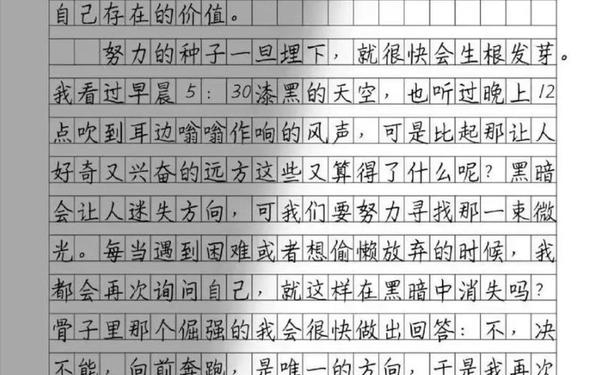 自己存在的价值。
努力的种子一旦埋下，就很快会生根发芽。
我看过早晨5：30漆黑的天空，也听过晚上12
点吹到耳边嗡嗡作响的风声，可是比起那让人
好奇又兴奋的远方这些又算得了什么呢？黑暗
会让人迷失方向，可我们要努力寻找那一束微
光。每当遇到困难或者想偷懒放弃的时候，我
都会再次询问自己，就这样在黑暗中消失吗？
骨子里那个倔强的我会很快做出回答：不，决
不能，向前奔跑，是唯一的方向，于是我再次